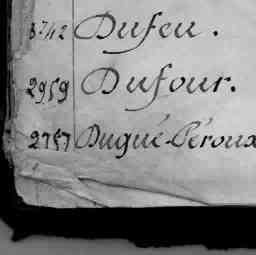 8742 Dufeu.
2959 Dufour.
2757 Dugué-Péroux